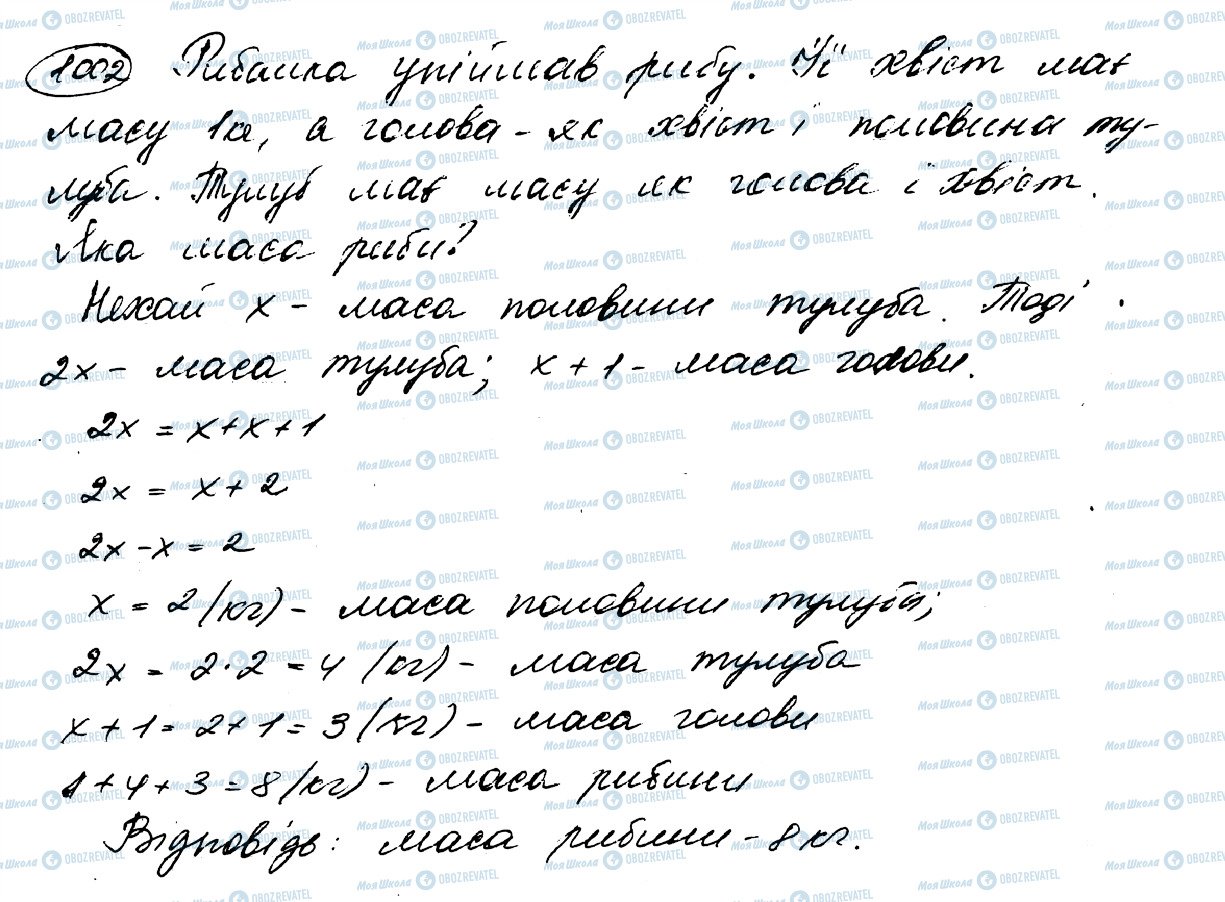 1002 Рибалка упіймав рибу. Її хвіст має
масу 1кг, а голова - як хвіст і половина ту-
луба. Тулуб має масу як голова і хвіст.
Яка маса риби?
Нехай х - маса половини тулуба. Тоді
2х - маса тулуба; х + 1 - маса голови.
2х = х + х + 1
2х = х + 2
2х - х = 2
х = 2 (кг) - маса половини тулуба;
2х = 2·2 = 4 (кг) - маса тулуба
х + 1 = 2 + 1 = 3 (кг) - маса голови
1 + 4 + 3 = 8 (кг) - маса рибини
Відповідь: маса рибини - 8 кг.
Моя Школа OBOZREVATEL